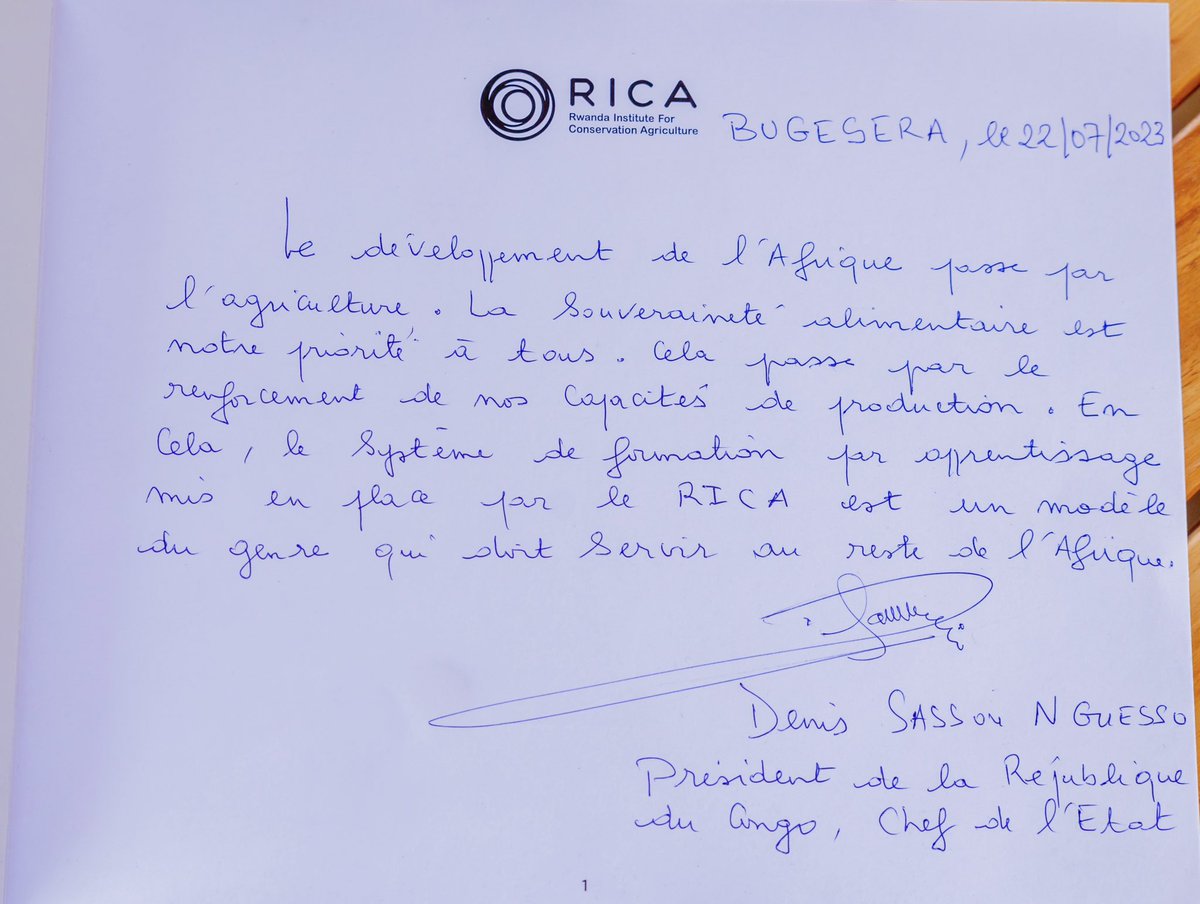 RICA
Rwanda Institute For
Conservation Agriculture
BUGESERA, le 22/07/2023
Le développement de l'Afrique passe par
l'agriculture. La Souveraineté alimentaire est
notre priorité à tous. Cela passe par le
renforcement de nos Capacités de production. En
Cela, le Système de formation par apprentissage
mis en place par le RICA est un modèle
du genre qui doit Servir au reste de l'Afrique.
Denis SASSOU NGUESSO
Président de la République
du Congo, Chef de l'Etat
1